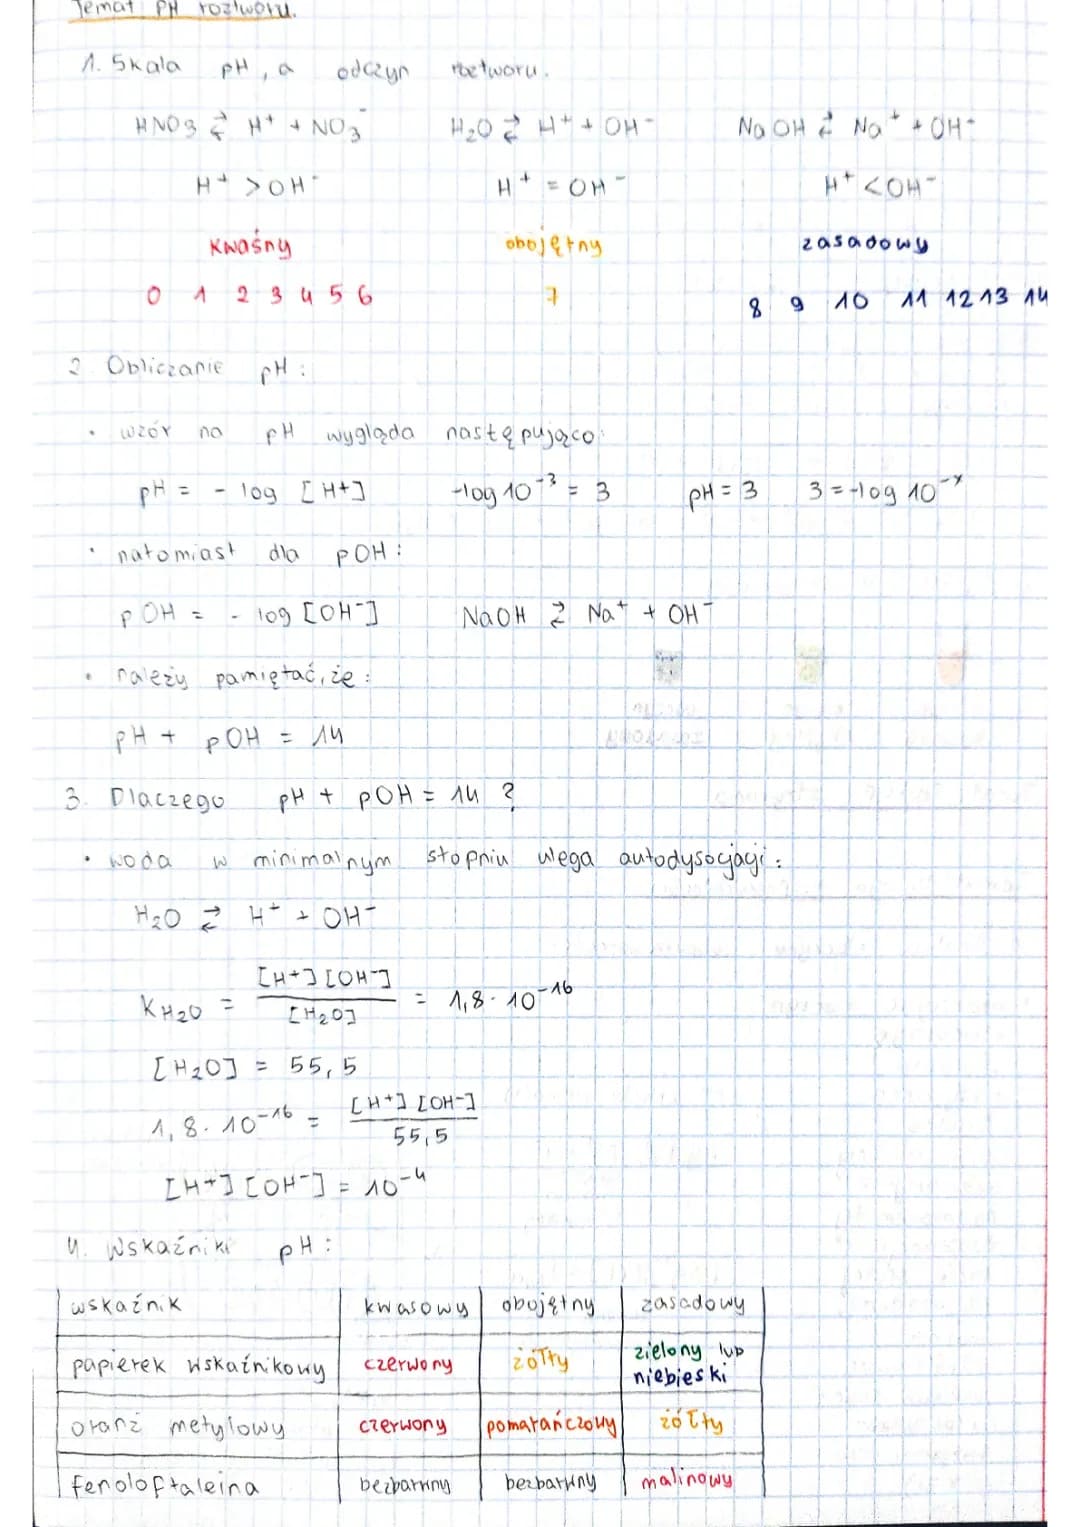 Temat PH roztworu.
1. Skala pH, a odczyn roztworu.
HNO3 ⇄ H⁺ + NO3⁻ H₂O ⇄ H⁺ + OH⁻ NaOH ⇄ Na⁺ + OH⁻
H⁺ > OH⁻ H⁺ = OH⁻ H⁺ < OH⁻
kwaśny obojętny zasadowy
0 1 2 3 4 5 6 7 8 9 10 11 12 13 14
2. Obliczanie pH:
• wzór na pH wygląda następująco:
pH = - log [H+] -log 10⁻³ = 3 pH = 3 3 = -log 10⁻ˣ
• natomiast dla pOH:
pOH = - log [OH⁻] NaOH ⇄ Na⁺ + OH⁻
• należy pamiętać, że:
pH + pOH = 14
3. Dlaczego pH + pOH = 14 ?
• woda w minimalnym stopniu ulega autodysocjagi:
H₂O ⇄ H⁺ + OH⁻
K H₂O = [H+][OH⁻] / [H₂O] = 1,8 · 10⁻¹⁶
[H₂O] = 55,5
1,8 · 10⁻¹⁶ = [H+][OH-] / 55,5
[H+][OH⁻] = 10⁻⁴
4. Wskaźniki pH:
wskaźnik kwasowy obojętny zasadowy
papierek wskaźnikowy czerwony żółty zielony lub niebieski
oranż metylowy czerwony pomarańczowy żółty
fenoloftaleina bezbarwny bezbarwny malinowy